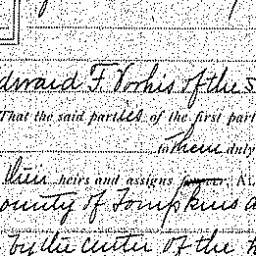 Edward F Vorhis of the
That the said parties of the first part
to them duly
their heirs and assigns
County of Tompkins
by the center of the